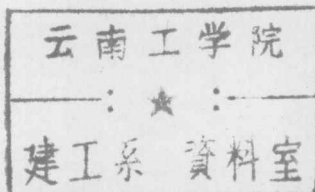 云南工学院
建工系 資料室